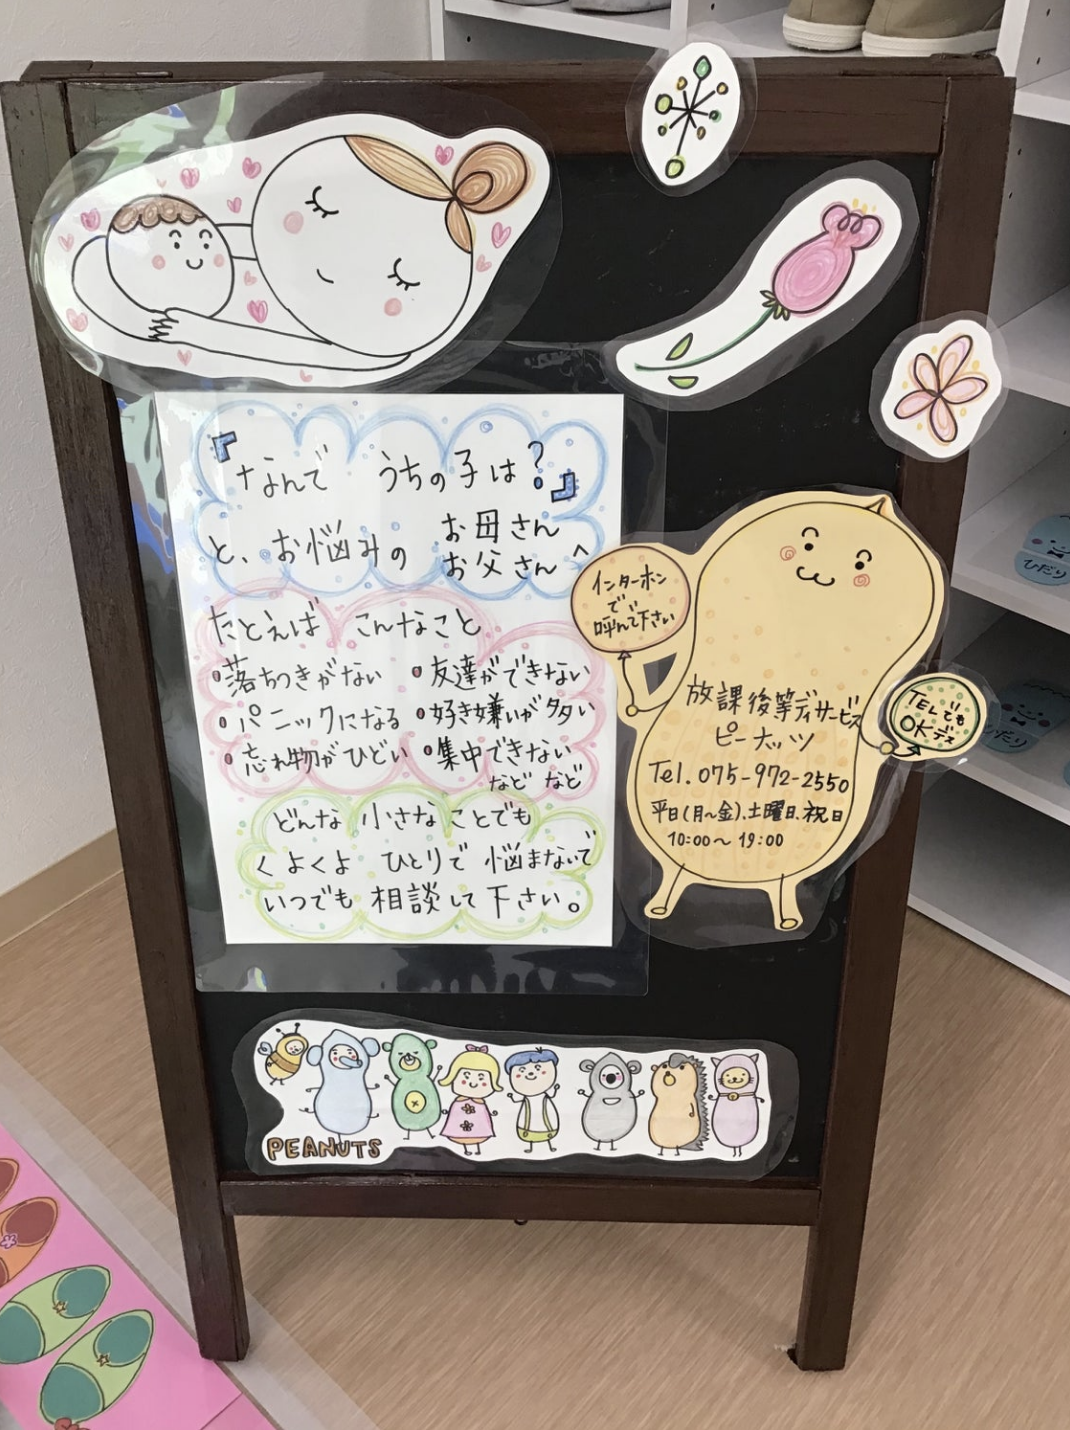 『なんで うちの子は？』
と、お悩みの お母さん お父さん へ
たとえば こんなこと
・落ちつきがない ・友達ができない
・パニックになる ・好き嫌いが多い
・忘れ物がひどい ・集中できない
など など
どんな 小さな ことでも
くよくよ ひとりで 悩まないで
いつでも 相談して下さい。
インターホン
で
呼んで下さい
放課後等デイサービス
ピーナッツ
Tel.075-972-2550
平日(月〜金)、土曜日、祝日
10:00〜19:00
TELでも
OKデス
PEANUTS
ひだり
ひだり